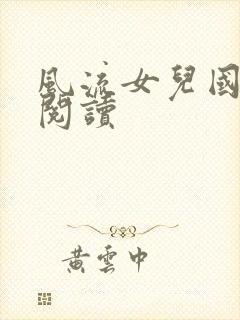 風流女兒國
閱讀
黃雲中